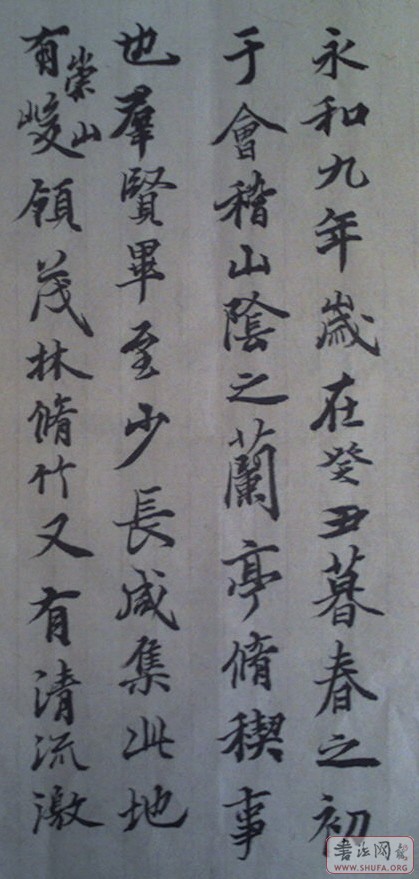 永和九年歲在癸丑暮春之初
于會稽山陰之蘭亭脩稧事
也羣賢畢至少長咸集此地
有崇山峻領茂林脩竹又有清流激
书法网
WWW.SHUFA.ORG